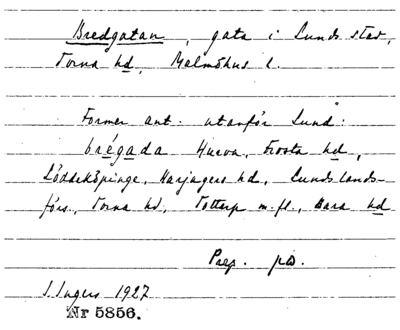 Bredgatan, gata i Lunds stad,
Torna hd, Malmöhus l.
Former ant. utanför Lund:
brégada Hurva, Frosta hd,
Löddeköpinge, Harjagers hd, Lunds lands-
förs., Torna hd, Tottarp m. fl., Bara hd
Prep. på.
I. Ingers 1927
Nr 5856.